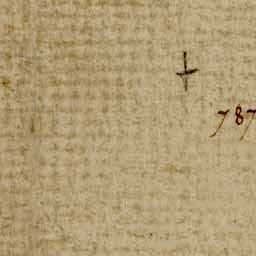 +
787